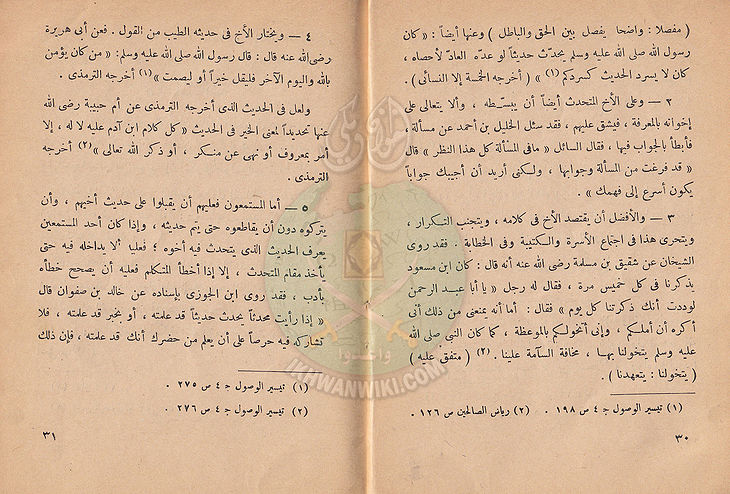 ( مفصلا : واضحا يفصل بين الحق والباطل ) وعنها أيضاً : « كان
رسول الله صلى الله عليه وسلم يحدّث حديثاً لو عدّه العادّ لأحصاه ،
كان لا يسرد الحديث كسردكم (١) » ( أخرجه الخمسة إلا النسائى ) .
٢ — وعلى الأخ المتحدث أيضاً أن يبسّطه ، وألا يتعالى على
إخوانه بالمعرفة ، فيشق عليهم ، فقد سئل الخليل بن أحمد عن مسألة ،
فأبطأ بالجواب فيها ، فقال السائل « ما فى المسألة كل هذا النظر » قال
« قد فرغت من المسألة وجوابها ، ولكنى أريد أن أجيبك جواباً
يكون أسرع إلى فهمك » .
٣ — والأفضل أن يقتصد الأخ فى كلامه ، ويتجنب التكرار ،
ويتحرى هذا فى اجتماع الأسرة والكتيبة وفى الخطابة . فقد روى
الشيخان عن شقيق بن مسلمة رضى الله عنه أنه قال : كان ابن مسعود
يذكرنا فى كل خميس مرة ، فقال له رجل « يا أبا عبد الرحمن
لوددت أنك ذكرتنا كل يوم » فقال : أما أنه يمنعنى من ذلك أنى
أكره أن أملكم ، وإنى أتخولكم بالموعظة ، كما كان النبى صلى الله
عليه وسلم يتخولنا بها ، مخافة السآمة علينا . (٢) ( متفق عليه )
( يتخولنا : يتعهدنا ) .
(١) تيسير الوصول ج ٤ ص ١٩٨ . (٢) رياض الصالحين ص ١٢٦ .
٣٠
٤ — ويختار الأخ فى حديثه الطيب من القول . فعن أبى هريرة
رضى الله عنه قال : قال رسول الله صلى الله عليه وسلم : « من كان يؤمن
بالله واليوم الآخر فليقل خيراً أو ليصمت » (١) أخرجه الترمذى .
ولعل فى الحديث الذى أخرجه الترمذى عن أم حبيبة رضى الله
عنها تحديداً لمعنى الخير فى الحديث « كل كلام ابن آدم عليه لا له ، إلا
أمر بمعروف أو نهى عن منكر ، أو ذكر الله تعالى » (٢) أخرجه
الترمذى .
٥ — أما المستمعون فعليهم أن يقبلوا على حديث أخيهم ، وأن
يتركوه دون أن يقاطعوه حتى يتم حديثه ، وإذا كان أحد المستمعين
يعرف الحديث الذى يتحدث فيه أخوه ؛ فعليه ألا يداخله فيه حتى
يأخذ مقام المتحدث ، إلا إذا أخطأ المتكلم فعليه أن يصحح خطأه
بأدب ، فقد روى ابن الجوزى بإسناده عن خالد بن صفوان قال
« إذا رأيت محدثاً يحدث حديثاً قد علمته ، أو بخبر قد علمته ، فلا
تشاركه فيه حرصاً على أن يعلم من حضرك أنك قد علمته ، فإن ذلك
(١) تيسير الوصول ج ٤ ص ٢٧٥ .
(٢) تيسير الوصول ج ٤ ص ٢٧٦ .
٣١
وأعدوا
IKHWANWIKI.COM